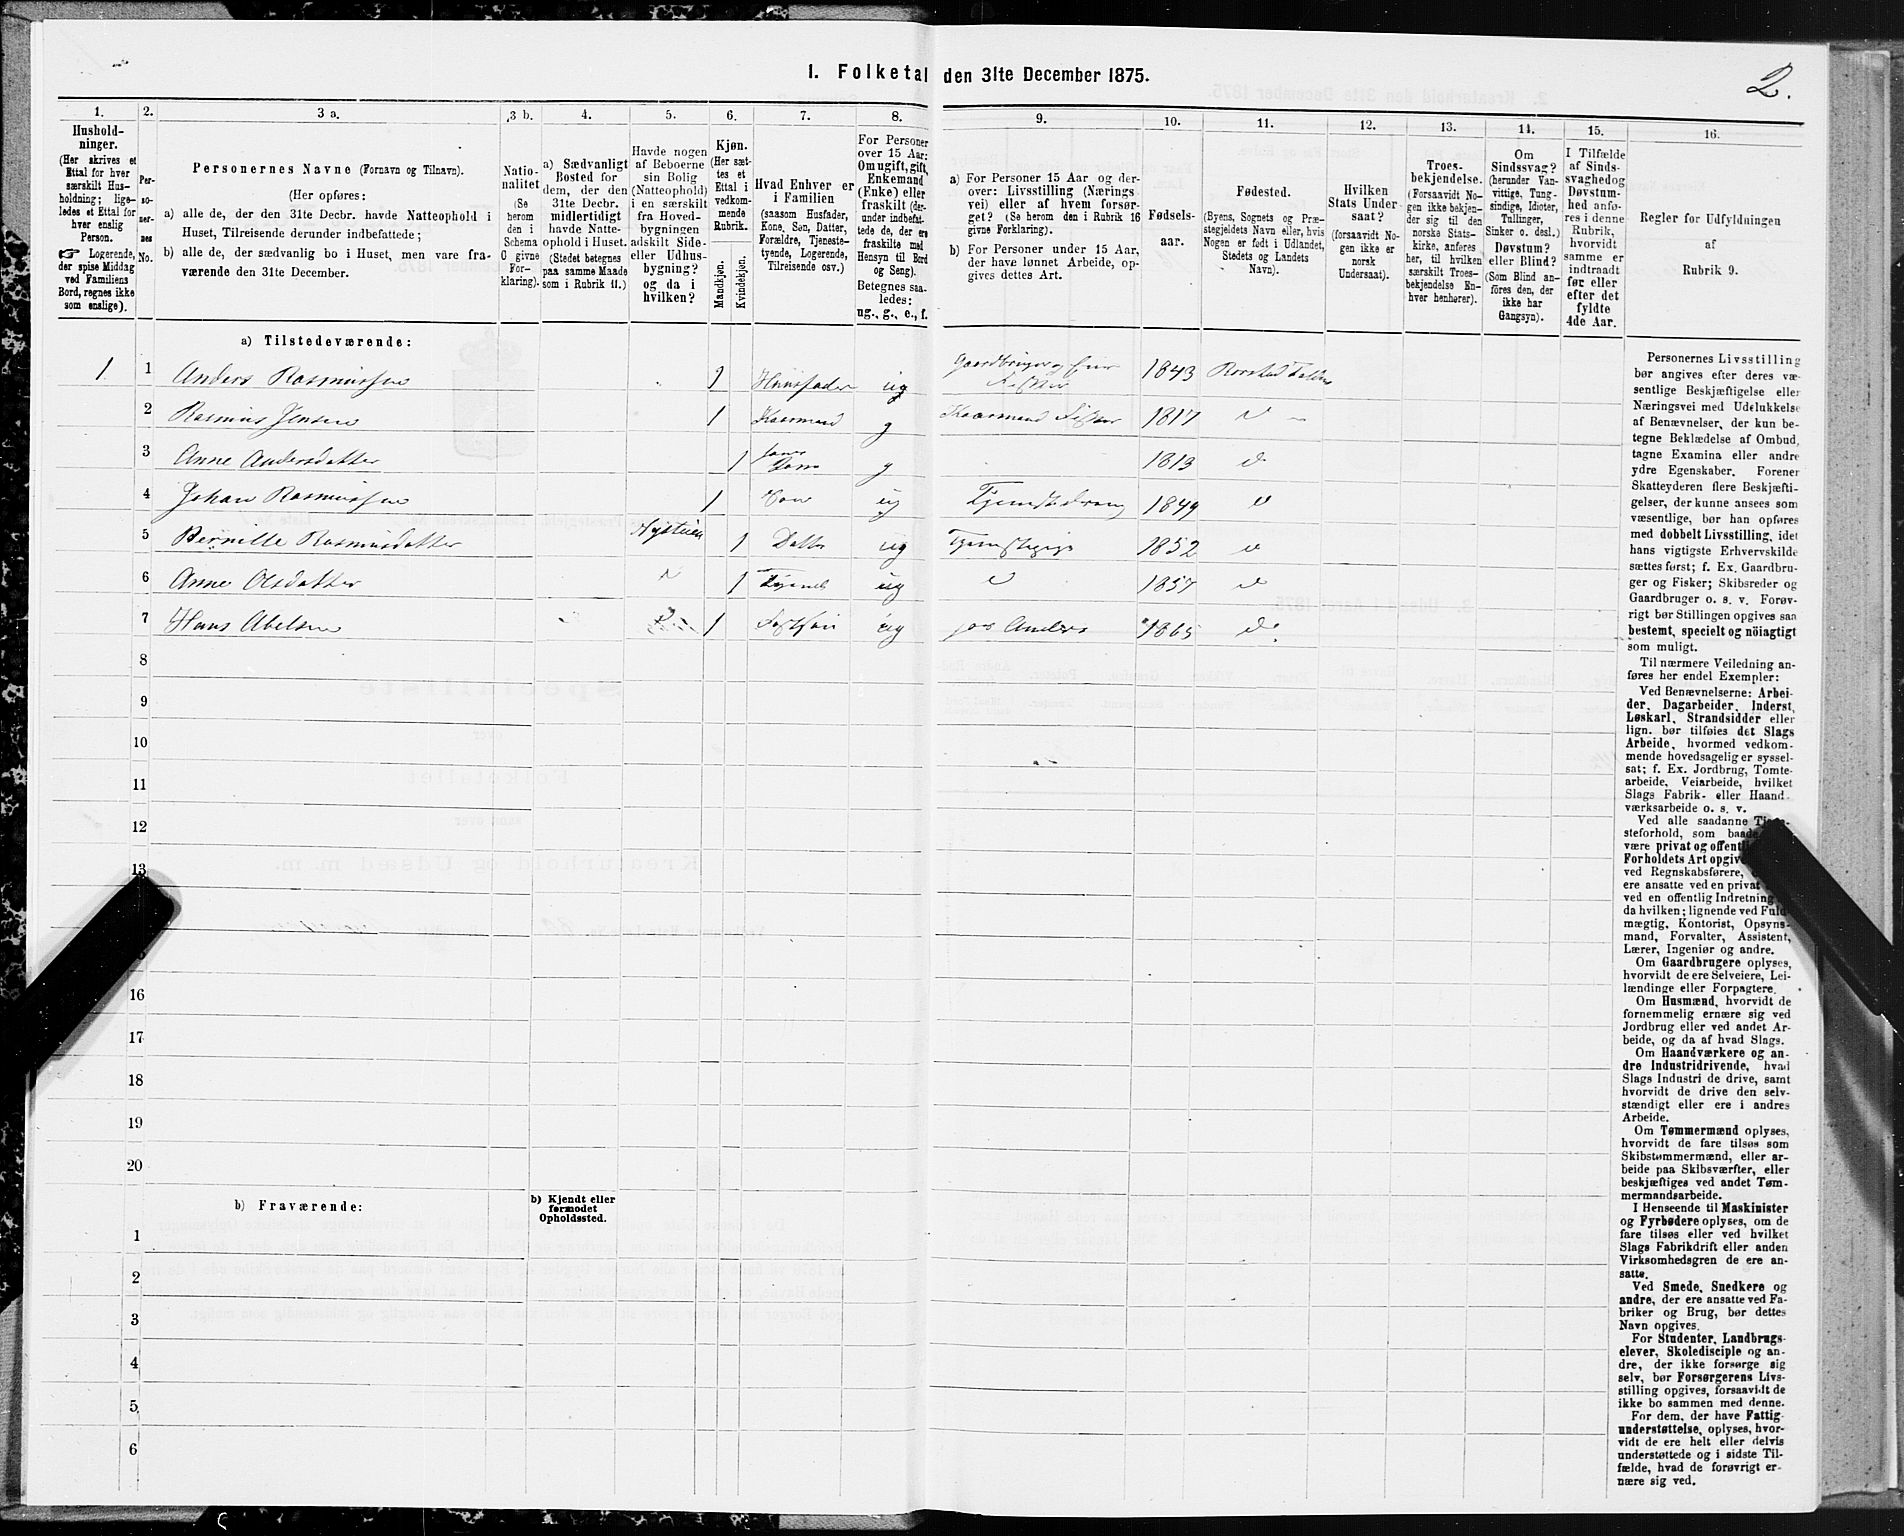 1. Folketal den 31te December 1875.
2.
1.
Hushold-
ninger.
(Her skrives et
Ettal for hver
særskilt Hus-
holdning; lige-
ledes et Ettal for
hver enslig
Person.
☞ Logerende,
der spise Middag
ved Familiens
Bord, regnes ikke
som enslige).
2.
Per-
so-
ner-
nes
No.
3 a.
Personernes Navne (Fornavn og Tilnavn).
(Her opføres:
a) alle de, der den 31te Decbr. havde Natteophold i
Huset, Tilreisende derunder indbefattede;
b) alle de, der sædvanlig bo i Huset, men vare fra-
værende den 31te December.
3 b.
Natio-
nalitet
(Se
herom
den i
Schema
C givne
For-
klaring).
4.
a) Sædvanligt
Bosted for
dem, der den
31te Decbr.
midlertidigt
havde Natte-
ophold i Huset.
(Stedet betegnes
paa samme Maade
som i Rubrik 11.)
5.
Havde nogen
af Beboerne
sin Bolig
(Natteophold)
i en særskilt
fra Hoved-
bygningen
adskilt Side-
eller Udhus-
bygning?
og da i
hvilken?
6.
Kjøn.
(Her sæt-
tes et
Ettal i
vedkom-
mende
Rubrik.
Mandkjøn.
Kvindekjøn.
7.
Hvad Enhver er
i Familien
(saasom Husfader,
Kone, Søn, Datter,
Forældre, Tjeneste-
tyende, Logerende,
Tilreisende osv.)
8.
For Personer
over 15 Aar:
Om ugift, gift,
Enkemand
(Enke) eller
fraskilt (der-
under indbefat-
tede de, der ere
fraskilte med
Hensyn til Bord
og Seng).
Betegnes saa-
ledes:
ug., g., e., f.
9.
a) For Personer 15 Aar og der-
over: Livsstilling (Nærings-
vei) eller af hvem forsør-
get? (Se herom den i Rubrik 16
givne Forklaring).
b) For Personer under 15 Aar,
der have lønnet Arbeide, op-
gives dettes Art.
10.
Fødsels-
aar.
11.
Fødested.
(Byens, Sognets og Præ-
stegjeldets Navn eller, hvis
Nogen er født i Udlandet,
Stedets og Landets
Navn).
12.
Hvilken
Stats Under-
saat?
(forsaavidt No-
gen ikke er
norsk
Undersaat).
13.
Troes-
bekjendelse.
(Forsaavidt No-
gen ikke bekjen-
der sig til den
norske Stats-
kirke, anføres
her, til hvilken
særskilt Troes-
bekjendelse En-
hver henhører).
14.
Om
Sindssvag?
(herunder Van-
vittige, Tung-
sindige, Idioter,
Tullinger,
Sinker o. desl.)
Døvstum?
eller Blind?
(Som Blind an-
föres den, der
ikke har
Gangsyn).
15.
I Tilfælde
af Sinds-
svaghed og
Døvstum-
hed anfø-
res i denne
Rubrik,
hvorvidt
samme er
indtraadt
før eller
efter det
fyldte
4de Aar.
16.
Regler for Udfyldningen
af
Rubrik 9.
a) Tilstedeværende:
1 1 Anders Rasmussen 1 Huusfader ug Gaardbruger og Fisker 1843
2 Rasmus Jensen 1 Kaarmand g Kaarmand Fisker 1817
3 Anne Andersdatter 1 hans Kone g 1813
4 Johan Rasmussen 1 Søn ug Tjenstedreng 1849
5 Bernille Rasmusdatter 1 Datter ug Tjenstepige 1852
6 Anne Olsdatter 1 Tjenst ug 1857
7 Hans Abelsen 1 ug 1865
8
9
10
11
12
13
16
17
18
19
20
b) Fraværende:
b) Kjendt eller
formodet
Opholdssted.
1
2
3
4
5
6
Personernes Livsstilling
bør angives efter deres væ-
sentlige Beskjæftigelse eller
Næringsvei med Udelukkelse
af Benævnelser, der kun be-
tegne Beklædelse af Ombud,
tagne Examina eller andre
ydre Egenskaber. Forener
Skatteyderen flere Beskjæfti-
gelser, der kunne ansees som
væsentlige, bør han opføres
med dobbelt Livsstilling, idet
hans vigtigste Erhvervskilde
sættes først; f. Ex. Gaardbru-
ger og Fisker; Skibsreder og
Gaardbruger o. s. v. Forøv-
rigt bør Stillingen opgives saa
bestemt, specielt og nöiagtigt
som muligt.
Til nærmere Veiledning an-
føres her endel Exempler:
Ved Benævnelserne: Arbei-
der, Dagarbeider, Inderst,
Løskarl, Strandsidder eller
lign. bør tilføies det Slags
Arbeide, hvormed vedkom-
mende hovedsagelig er syssel-
sat; f. Ex. Jordbrug, Tomte-
arbeide, Veiarbeide, hvilket
Slags Fabrik- eller Haand-
værksarbeide o. s. v.
Ved alle saadanne
steforhold, som baade
være privat og
Forholdets Art
ved Regnskabsførere,
ere ansatte ved en privat
ved en offentlig Indretning
da hvilken; lignende ved Fuld-
mægtig, Kontorist, Opsyns-
mand, Forvalter, Assistent,
Lærer, Ingeniør og andre.
Om Gaardbrugere oplyses,
hvorvidt de ere Selveiere, Lei-
lændinge eller Forpagtere.
Om Husmænd, hvorvidt de
fornemmelig ernære sig ved
Jordbrug eller ved andet Ar-
beide, og da af hvad Slags.
Om Haandværkere og an-
dre Industridrivende, hvad
Slags Industri de drive, samt
hvorvidt de drive den selv-
stændigt eller ere i andres
Arbeide.
Om Tømmermænd oplyses,
hvorvidt de fare tilsøs som
Skibstømmermænd, eller ar-
beide paa Skibsværfter, eller
beskjæftiges ved andet Tøm-
mermandsarbeide.
I Henseende til Maskinister
og Fyrbødere oplyses, om de
fare tilsøs eller ved hvilket
Slags Fabrikdrift eller anden
Virksomhedsgren de ere an-
satte.
Ved Smede, Snedkere og
andre, der ere ansatte ved Fa-
briker og Brug, bør dettes
Navn opgives.
For Studenter, Landbrugs-
elever, Skoledisciple og an-
dre, der ikke forsørge sig
selv, bør Forsørgerens Livs-
stilling opgives, forsaavidt de
ikke bo sammen med denne.
For dem, der have Fattig-
understøttelse, oplyses, hvor-
vidt de ere helt eller delvis
understøttede og i sidste Til-
fælde, hvad de forøvrigt er-
nære sig ved.